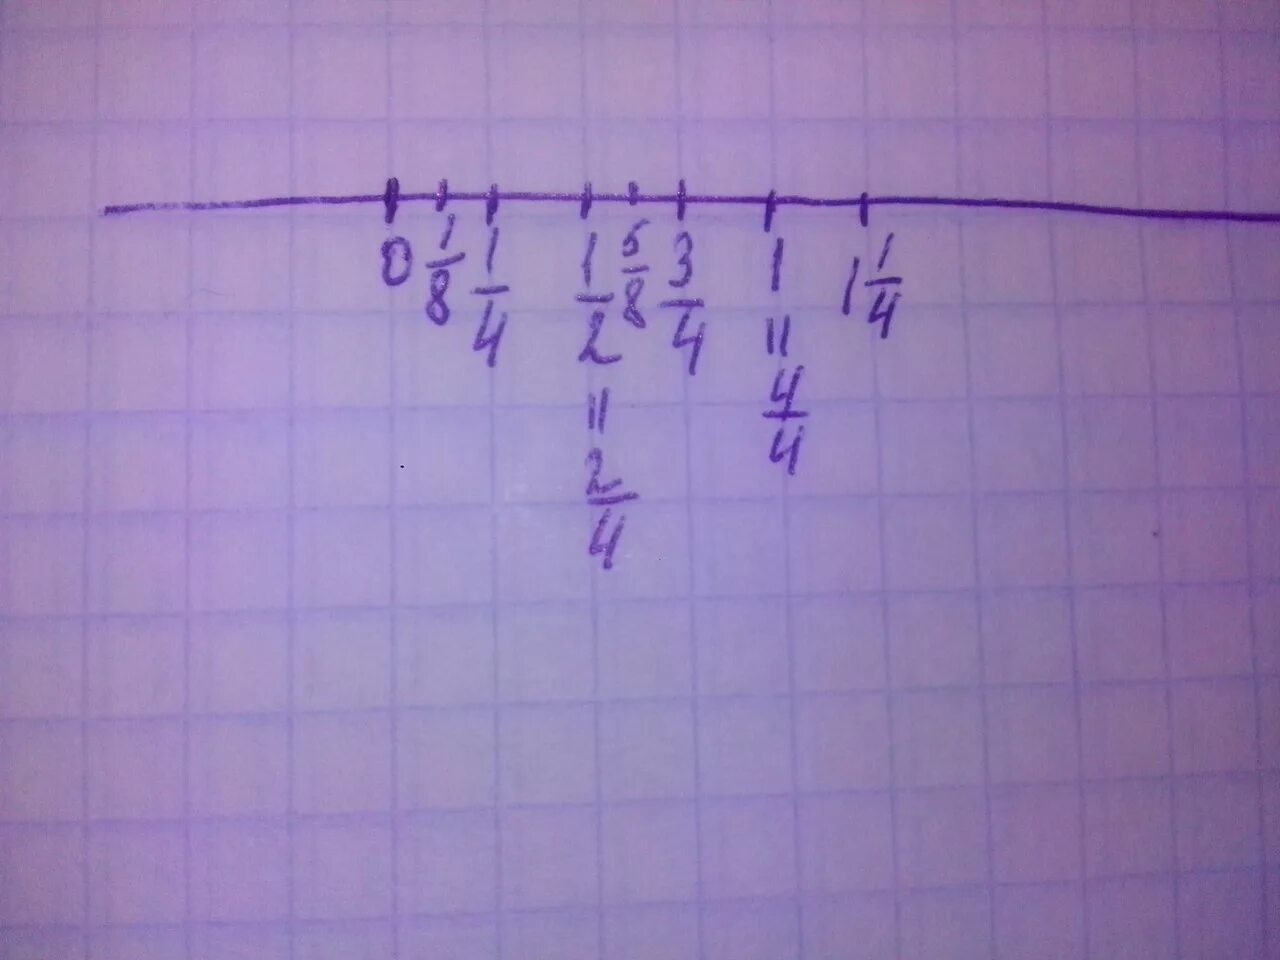 0 1/8 1/4 1/2 5/8 3/4 1 1 1/4
= =
2/4 4/4